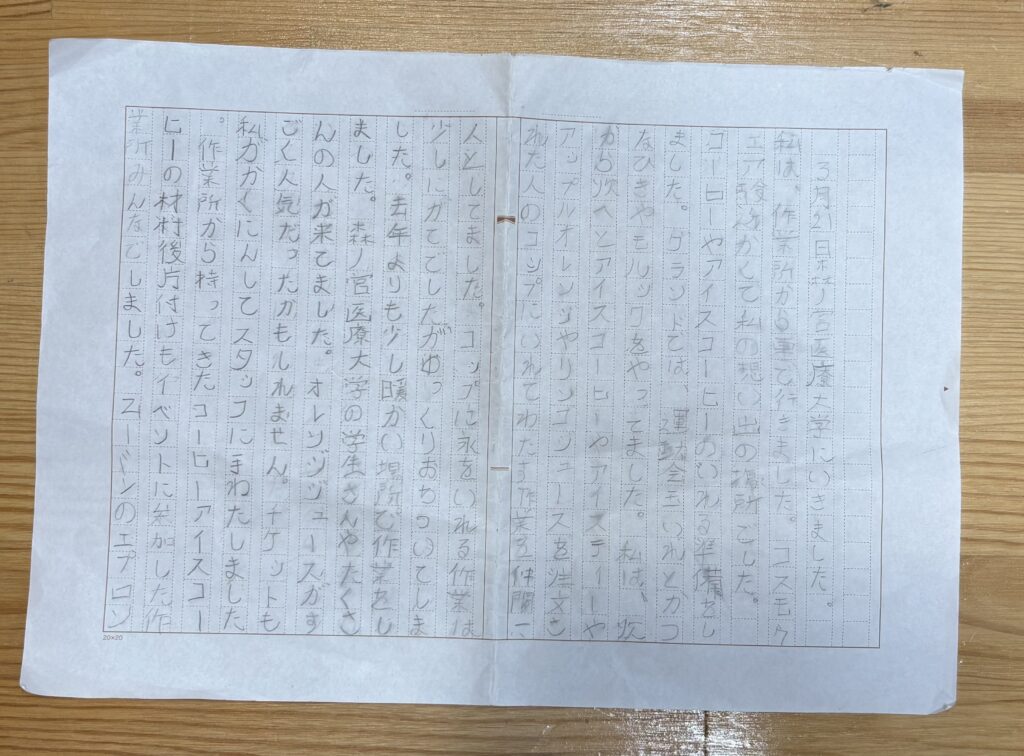 ３月２１日森ノ宮医療大学にいきました。
私は、作業所から車で行きました。コスモウ
エア験して私の想い出の場所でした。
コーヒーやアイスコーヒーのいれる準備をし
ました。グランドでは、運動会玉いれとかつ
なひきやモルックをやってました。私は、次
から次へとアイスコーヒーやアイスティーや
アップルオレンジやリンゴジュースを注文さ
れた人のコップにいれてわたす作業を仲間一
人としてました。コップに氷をいれる作業は
少しにがてでしたがゆっくりおちついてしま
した。去年よりも少し暖かい場所で作業をし
ました。森ノ宮医療大学の学生さんやたくさ
んの人が来てました。オレンジジュースがす
ごく人気だったかもしれません。チケットも
私がかくにんしてスタッフに手わたしました
。作業所から持ってきたコーヒーアイスコー
ヒーの材料後片付けもイベントに参加した作
業所みんなでしました。のエプロン
20×20